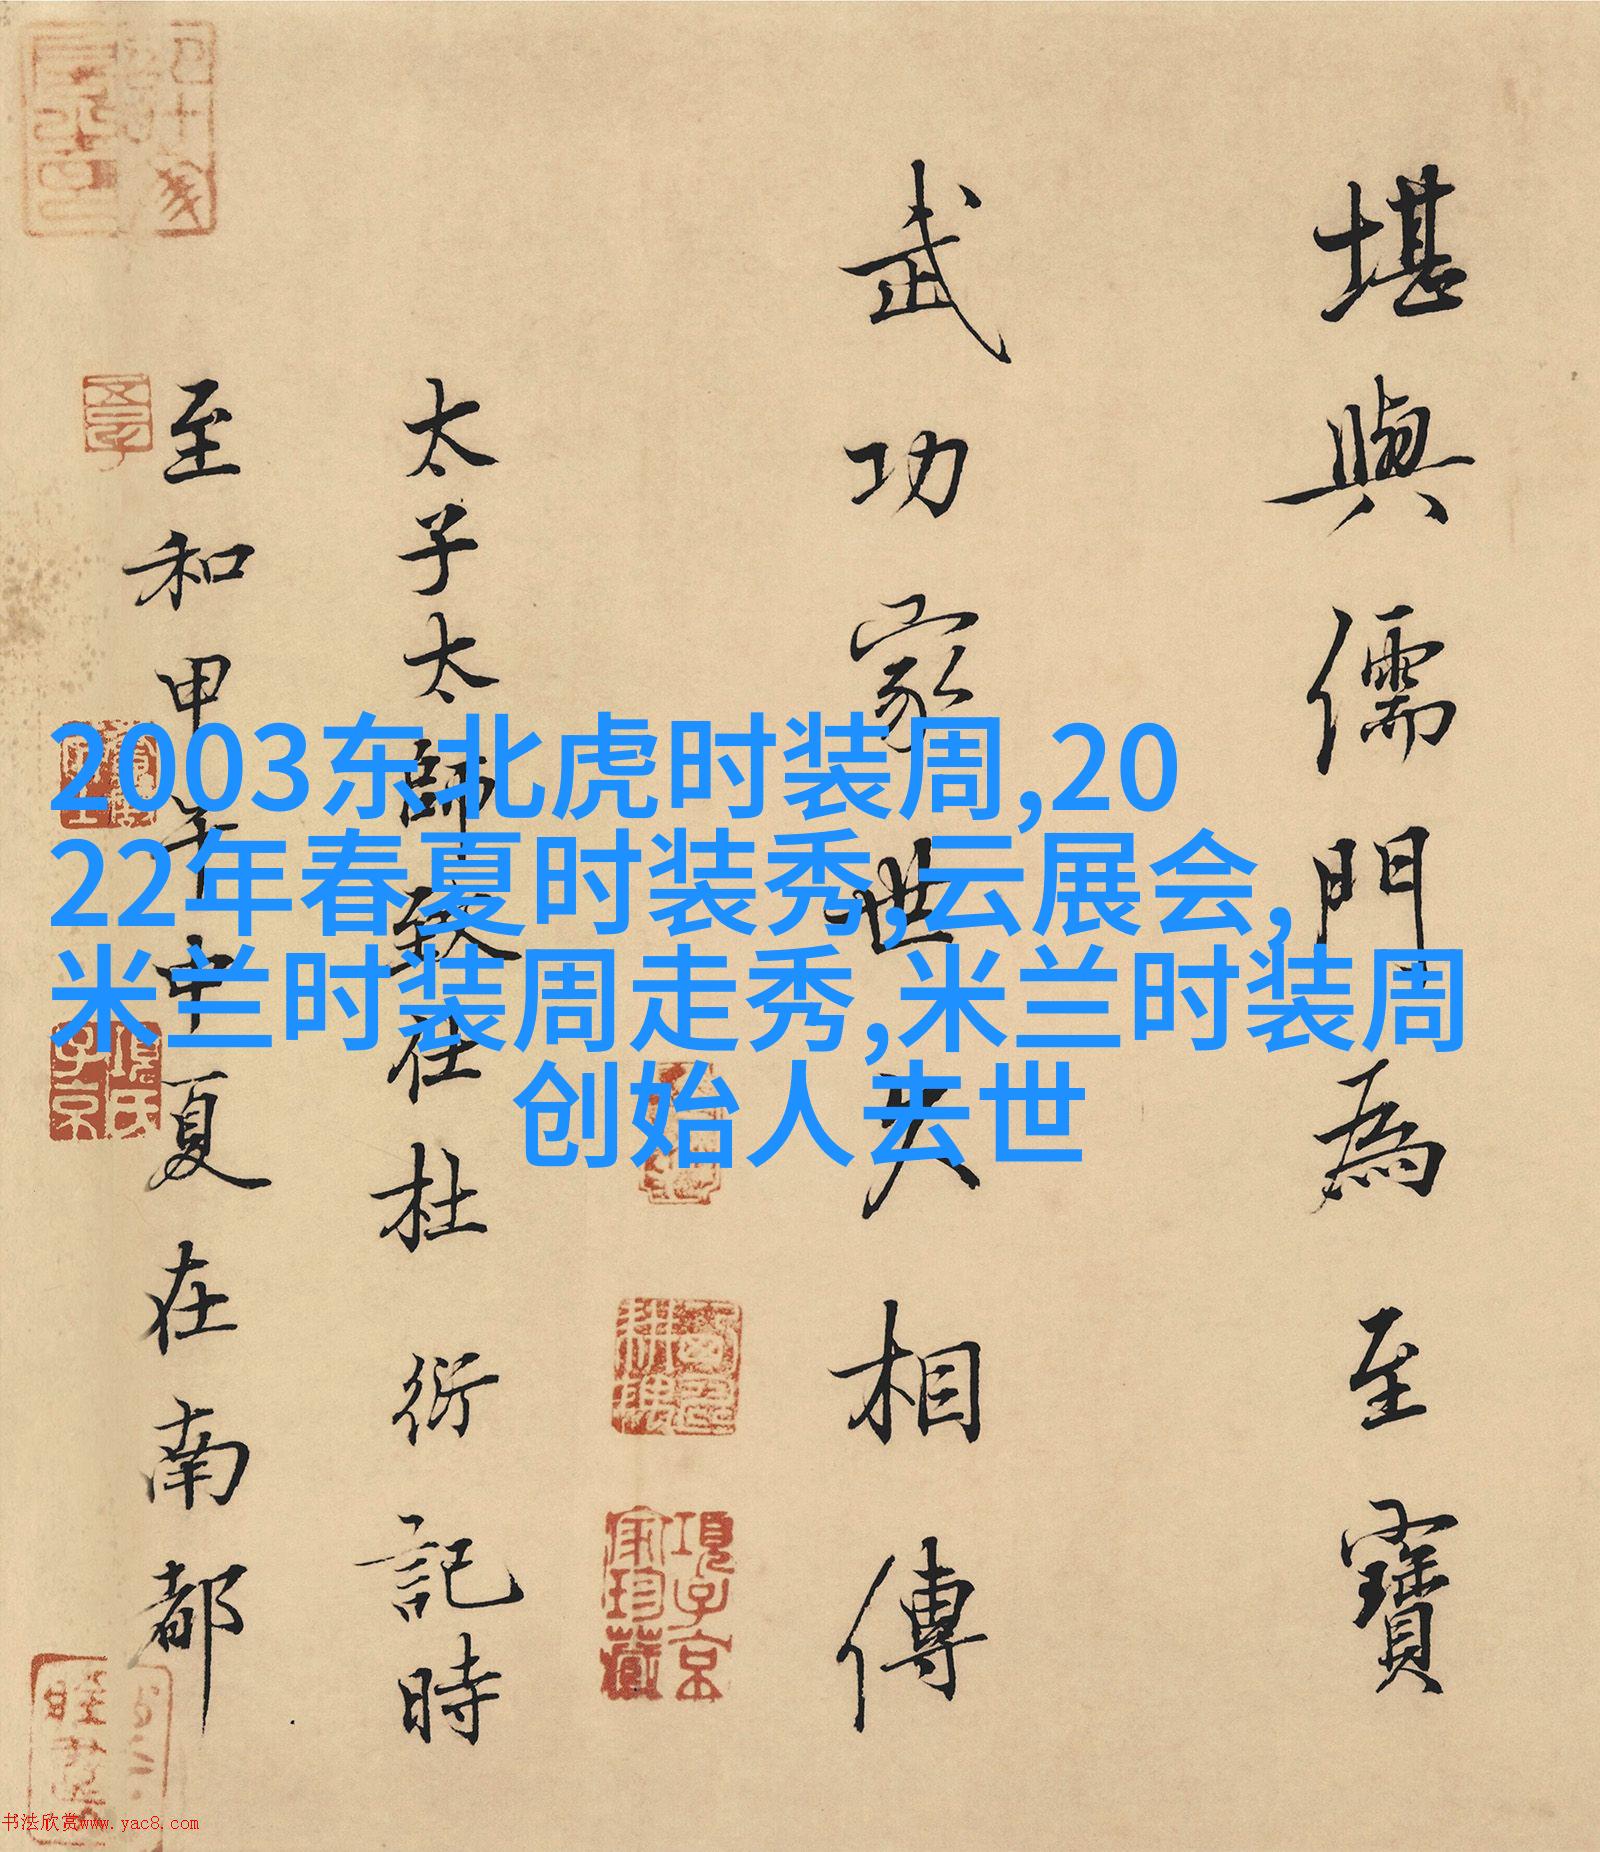 堪與儒門為至寶
武功家世久相傳
太子太師致仕杜衍記時
至和甲午中夏在南都
2003东北虎时装周,20
22年春夏时装秀,云展会,
米兰时装周走秀,米兰时装周
创始人去世
項子京
家珍藏
項氏
子京
书法欣赏www.yac8.com